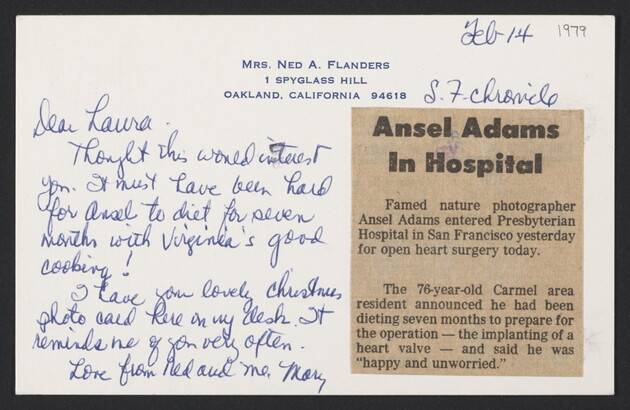 Feb-14 1979
MRS. NED A. FLANDERS
1 SPYGLASS HILL
OAKLAND, CALIFORNIA 94618
S.F. Chronicle
Dear Laura.
Thought this would interest
you. It must have been hard
for Ansel to diet for seven
months with Virginia's good
cooking!
I have your lovely Christmas
photo card here on my desk. It
reminds me of you very often.
Love from Ned and me. Mary
Ansel Adams
In Hospital
Famed nature photographer
Ansel Adams entered Presbyterian
Hospital in San Francisco yesterday
for open heart surgery today.
The 76-year-old Carmel area
resident announced he had been
dieting seven months to prepare for
the operation — the implanting of a
heart valve — and said he was
"happy and unworried."